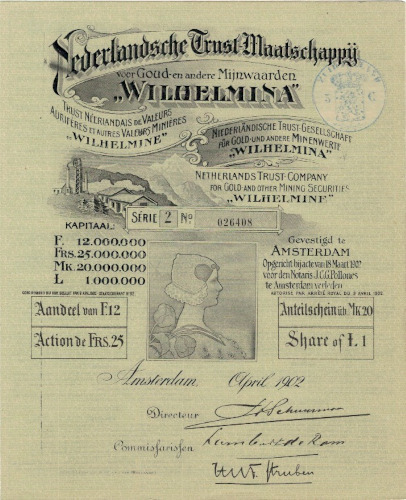 Nederlandsche Trust-Maatschappij
voor Goud-en andere Mijnwaarden
„WILHELMINA”
TRUST NÉERLANDAIS DE VALEURS
AURIFÈRES ET AUTRES VALEURS MINIÈRES
„WILHELMINE”
NIEDERLÄNDISCHE TRUST-GESELLSCHAFT
FÜR GOLD-UND ANDERE MINENWERTE
„WILHELMINA”
NETHERLANDS TRUST-COMPANY
FOR GOLD AND OTHER MINING SECURITIES
"WILHELMINE"
SÉRIE 2 No. 026408
KAPITAAL:
F. 12.000.000
FRS. 25.000.000
MK. 20.000.000
L 1.000.000
Gevestigd te
AMSTERDAM
Opgericht bij acte van 18 Maart 1902
voor den Notaris J.C.G. Pollones
te Amsterdam verleden
Aandeel van F.12
Action de FRS. 25
Anteilschein üb. MK 20
Share of £ 1
Amsterdam April 1902
Directeur
Commissarissen